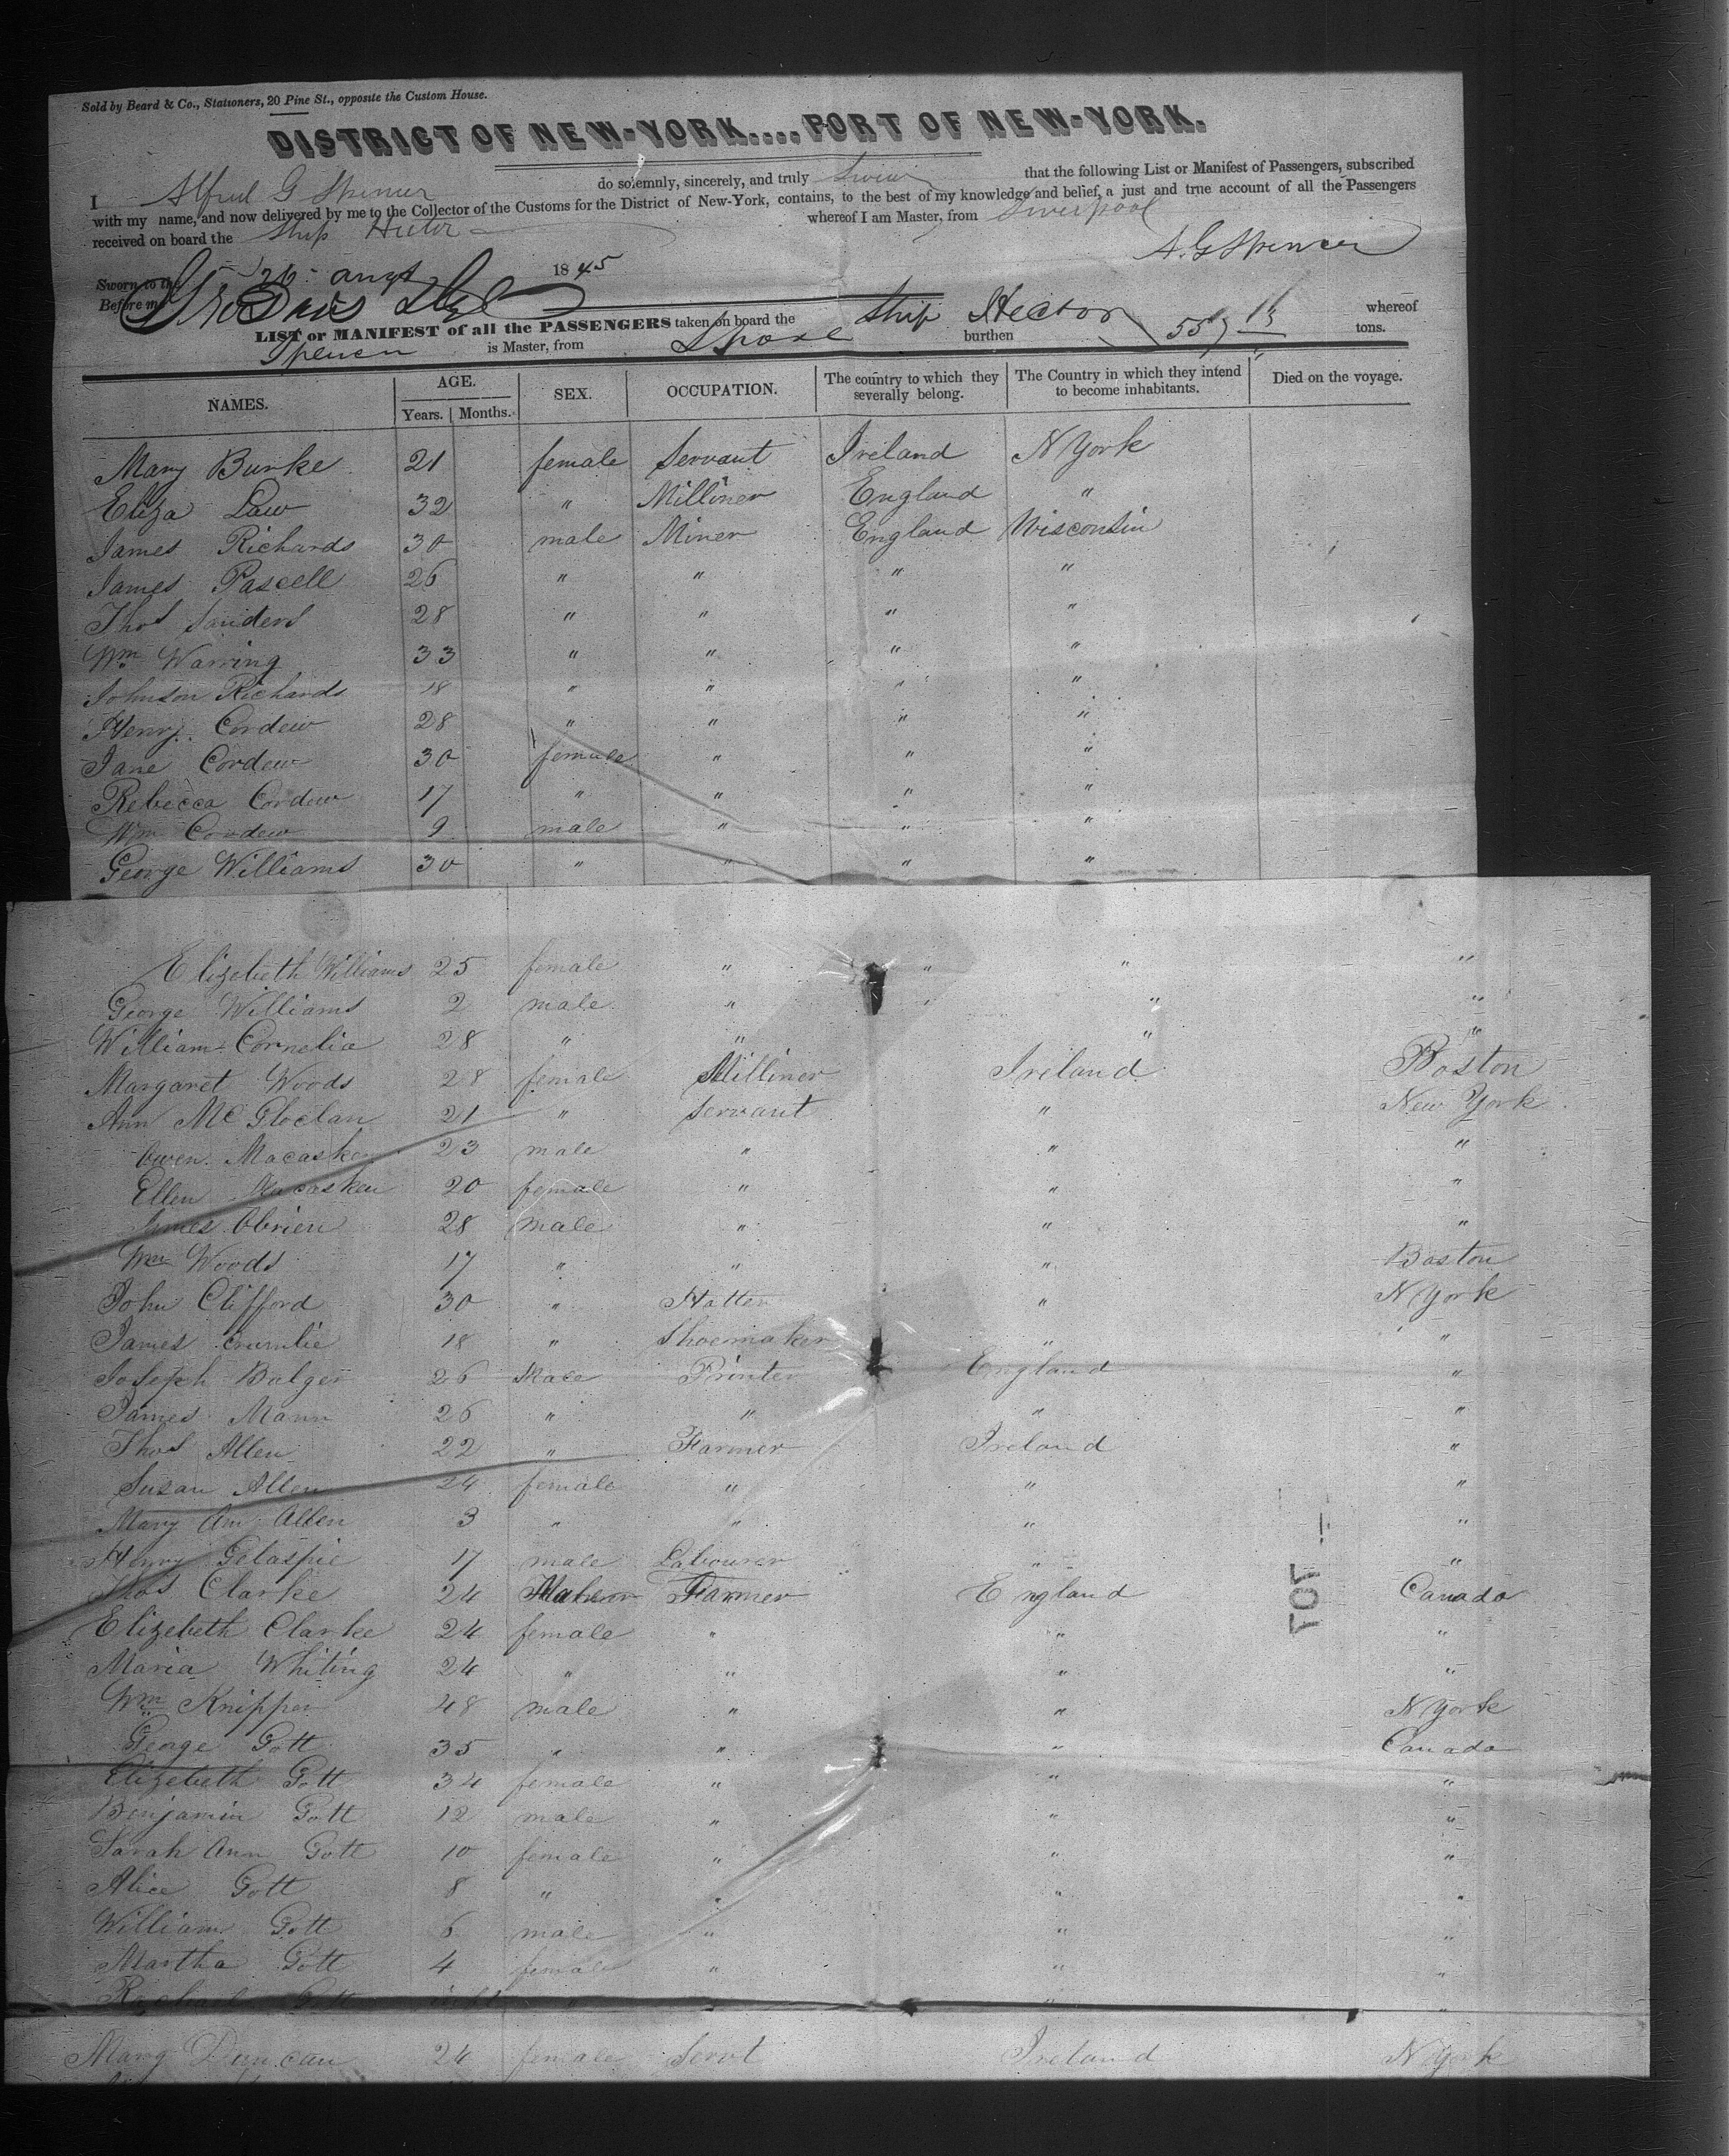 Sold by Beard & Co., Stationers, 20 Pine St., opposite the Custom House.
DISTRICT OF NEW-YORK....PORT OF NEW-YORK.
I Alfred G Spencer do solemnly, sincerely, and truly swear that the following List or Manifest of Passengers, subscribed
with my name, and now delivered by me to the Collector of the Customs for the District of New-York, contains, to the best of my knowledge and belief, a just and true account of all the Passengers
received on board the Ship Hector whereof I am Master, from Liverpool
A. G Spencer
Sworn to the 26 augt 1845
Before me
LIST or MANIFEST of all the PASSENGERS taken on board the Ship Hector whereof
Spencer is Master, from burthen tons.
NAMES. AGE. Years. Months. SEX. OCCUPATION. The country to which they severally belong. The Country in which they intend to become inhabitants. Died on the voyage.
Mary Burke 21 female Servant Ireland N York
Eliza Law 32 " Milliner England "
James Richards 30 male Miner England Wisconsin
James Pascell 26 " " " "
Thos Sanders 28 " " " "
Wm Warring 33 " " " "
Johnson Richards 18 " " " "
Henry Cordew 28 " " " "
Jane Cordew 30 female " " "
Rebecca Cordew 17 " " " "
Wm Cordew 9 male " " "
George Williams 30 " " " "
Elizebeth Williams 25 female " " " "
George Williams 2 male " " " "
William Cornelia 28 " " " "
Margaret Woods 28 female Milliner Ireland Boston
Ann McGloclan 21 " Servant " New York
Owen Macasken 23 male " " "
Ellen Macasken 20 female " " "
James Obrien 28 male " " "
Wm Woods 17 " " " Boston
John Clifford 30 " Hatter " N York
James 18 " Shoemaker " "
Joseph Bulger 26 Male Printer England "
James Mann 26 " " " "
Thos Allen 22 " Farmer Ireland "
Susan Allen 24 female " " "
Mary Ann Allen 3 " " " "
Henry Gelaspie 17 male Labourer " "
Thos Clarke 24 Farmer England Canada
Elizebeth Clarke 24 female " " "
Maria Whiting 24 " " " "
Wm Knipper 48 male " " N York
George Gott 35 " " " Canada
Elizebeth Gott 34 female " " "
Benjamin Gott 12 male " " "
Sarah Ann Gott 10 female " " "
Alice Gott 8 " " " "
William Gott 6 male " " "
Martha Gott 4 female " " "
Rachael Gott " " " "
Mary Duncan 24 female Servt Ireland N York